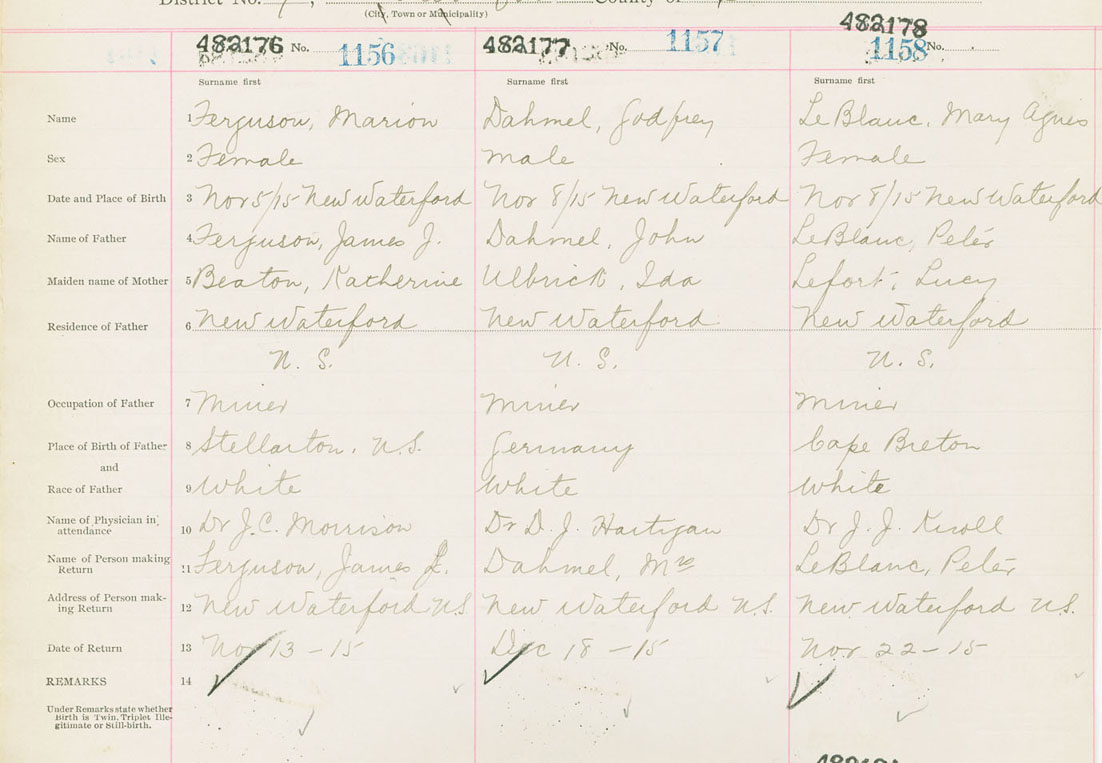 District No. County of
(City, Town or Municipality)
482176 No. 1156 482177 No. 1157 482178 1158 No.
Surname first Surname first Surname first
Name 1 Ferguson, Marion Dahmel, Godfrey LeBlanc, Mary Agnes
Sex 2 Female Male Female
Date and Place of Birth 3 Nov 5/15 New Waterford Nov 8/15 New Waterford Nov 8/15 New Waterford
Name of Father 4 Ferguson, James J. Dahmel, John LeBlanc, Peter
Maiden name of Mother 5 Beaton, Katherine Ulbrick, Ida Lefort, Lucy
Residence of Father 6 New Waterford New Waterford New Waterford
N. S. N. S. N. S.
Occupation of Father 7 Miner Miner Miner
Place of Birth of Father 8 Stellarton, N.S. Germany Cape Breton
and
Race of Father 9 White White White
Name of Physician in attendance 10 Dr J.C. Morrison Dr D. J. Hartigan Dr J. J.
Name of Person making Return 11 Ferguson, James Dahmel, Mrs LeBlanc, Peter
Address of Person making Return 12 New Waterford N.S. New Waterford N.S. New Waterford N.S.
Date of Return 13 Nov 13 - 15 Dec 18 - 15 Nov 22 - 15
REMARKS 14
Under Remarks state whether
Birth is Twin, Triplet, Ille-
gitimate or Still-birth.